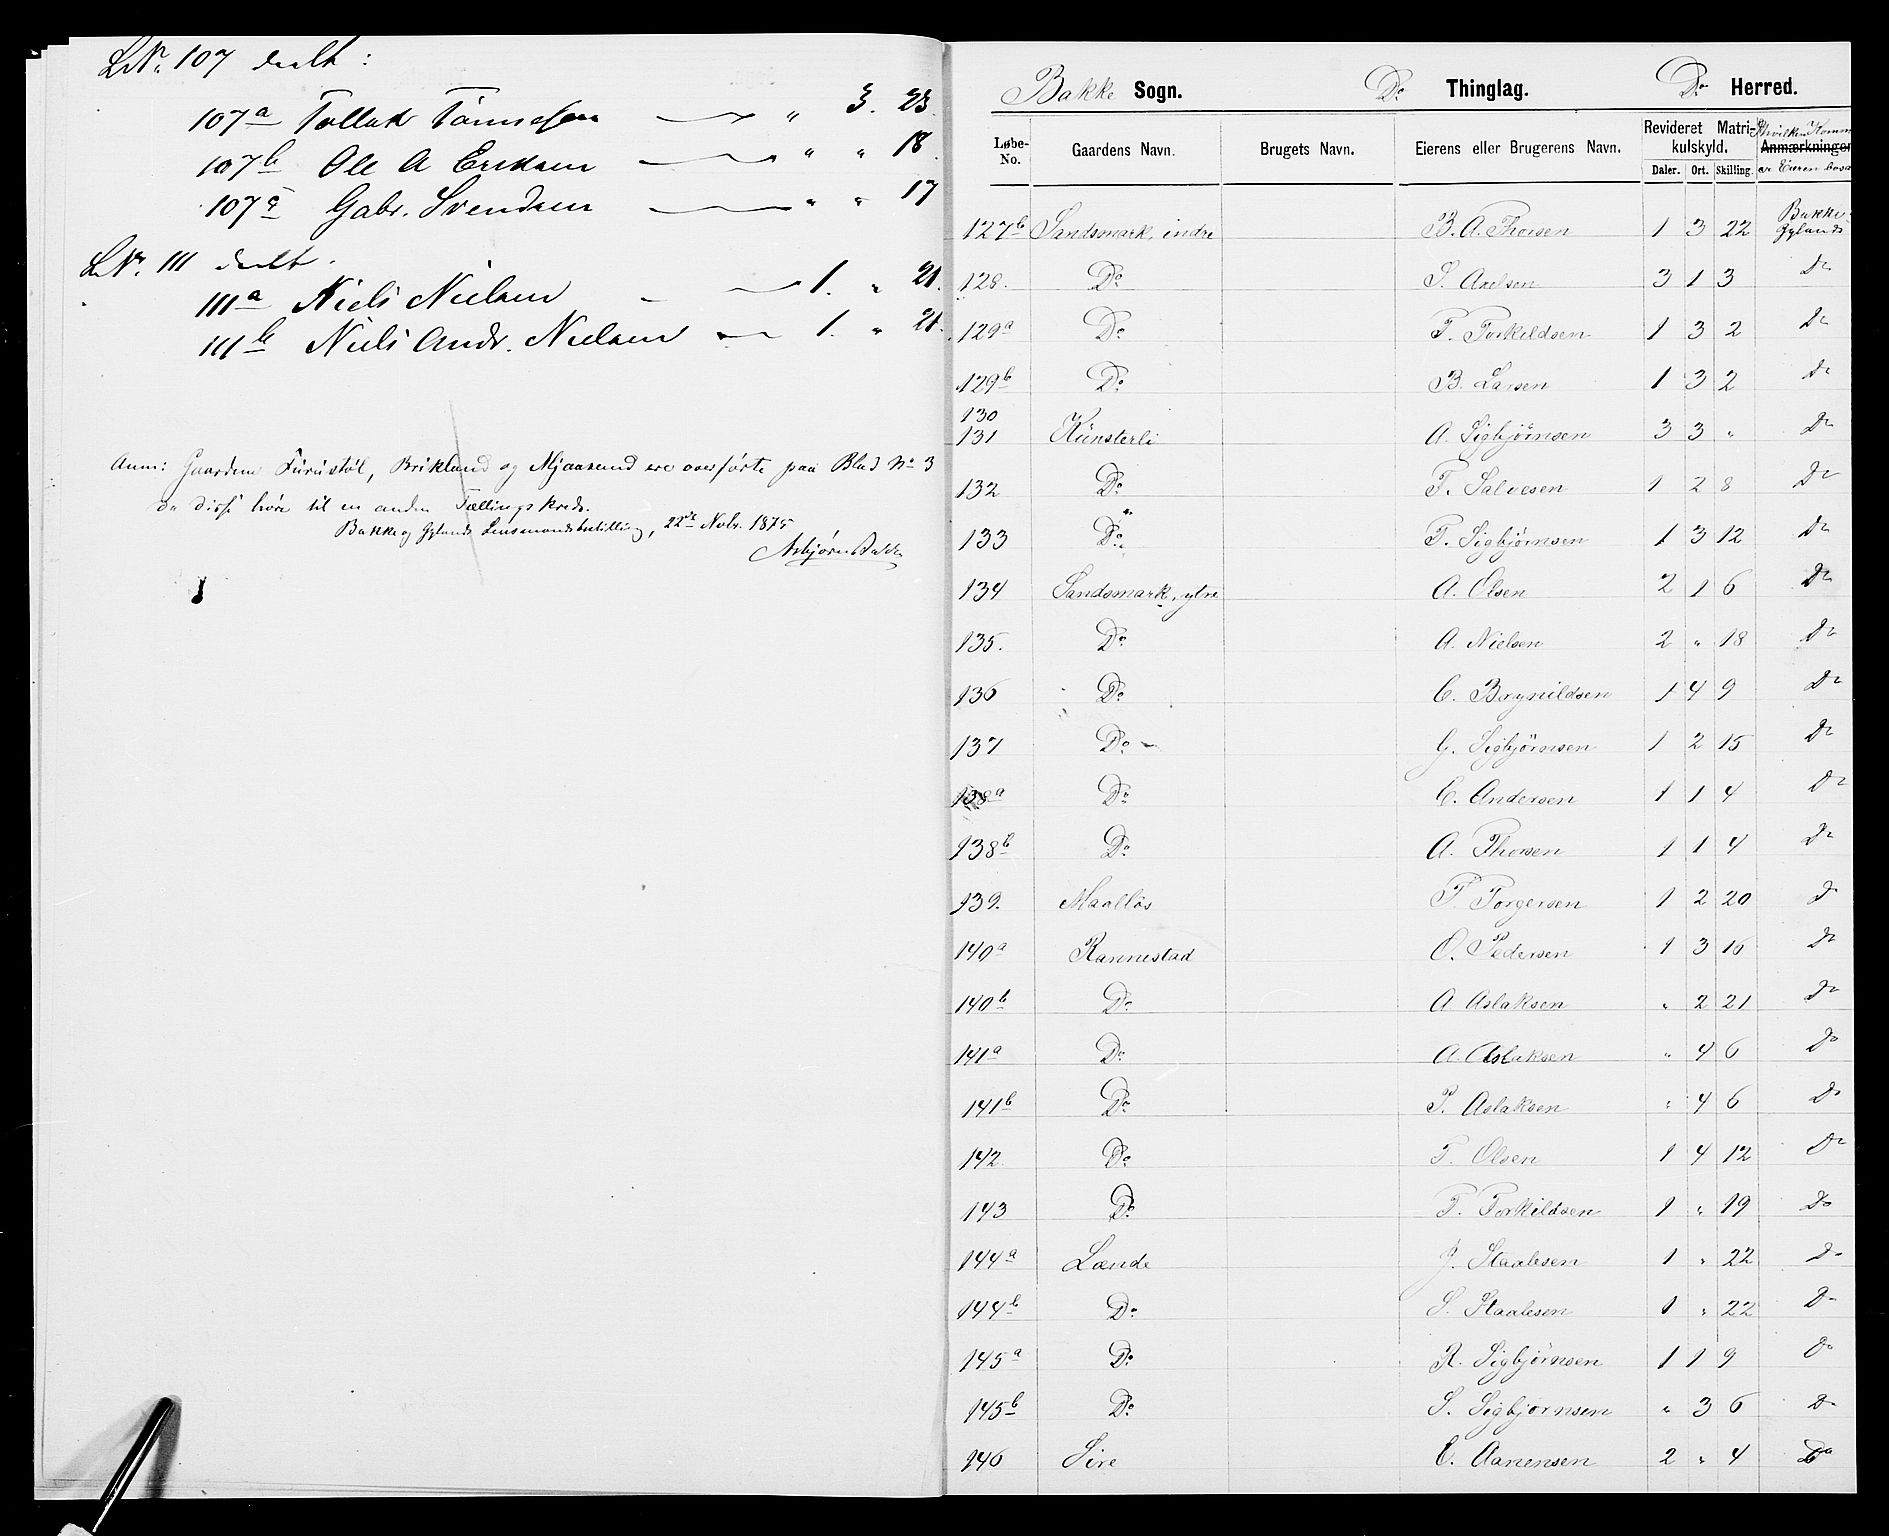 LNr. 107 deelt:
107a Tollak Tønnesen " 3. 23.
107b Ole A Eriksen " " 18.
107c Gabr. Svendsen " " 17
LNr. 111 deelt.
111a Niels Nielsen 1. " 21.
111b Niels Andr. Nielsen 1. " 21.
Anm: Gaardene Furustøl, Brikland og Mjaasund ere overførte paa Blad No 3
da disse høre til en anden Tællingskreds.
Bakke og Gylands Lensmandsbestilling, 22de Novbr. 1875
Asbjørn Bakke
Bakke Sogn. Do Thinglag. Do Herred.
Løbe-No. Gaardens Navn. Brugets Navn. Eierens eller Brugerens Navn. Revideret Matrikulskyld. Daler. Ort. Skilling. Anmærkninger hvilken Komm er Eieren bosa
127b Sandsmark, indre B. A. Thorsen 1 3 22 Bakke Gylands
128. Do S. Axelsen 3 1 3 Do
129a Do T. Torkildsen 1 3 2 Do
129b Do B. Larsen 1 3 2 Do
130
131 Kunsterli A. Sigbjørnsen 3 3 " Do
132 Do T. Salvesen 1 2 8 Do
133 Do T. Sigbjørnsen 1 3 12 Do
134 Sandsmark, ytre A. Olsen 2 1 6 Do
135. Do A. Nielsen 2 " 18 Do
136 Do C. Brynildsen 1 4 9 Do
137 Do G. Sigbjørnsen 1 2 15 Do
138a Do C. Andersen 1 1 4 Do
138b Do A. Thorsen 1 1 4 Do
139. Maalløs T. Torgersen 1 2 20 Do
140a Rannestad O. Pedersen 1 3 16 Do
140b Do A Aslaksen " 2 21 Do
141a Do A. Aslaksen " 4 6 Do
141b Do P. Aslaksen " 4 6 Do
142 Do T. Olsen 1 4 12 Do
143 Do T. Torkildsen 1 " 19 Do
144a Lænde J. Staalesen 1 " 22 Do
144b Do S. Staalesen 1 " 22 Do
145a Do R. Sigbjørnsen 1 1 9 Do
145b Do S. Sigbjørnsen " 3 6 Do
146 Sire E. Aanensen 2 " 4 Do